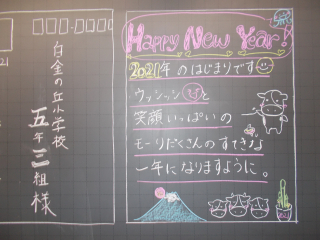 Happy New Year!
2021年のはじまりです
ウッシッシと
笑顔いっぱいの
モーりだくさんのすてきな
一年になりますように。
白金の丘小学校
五年三組様